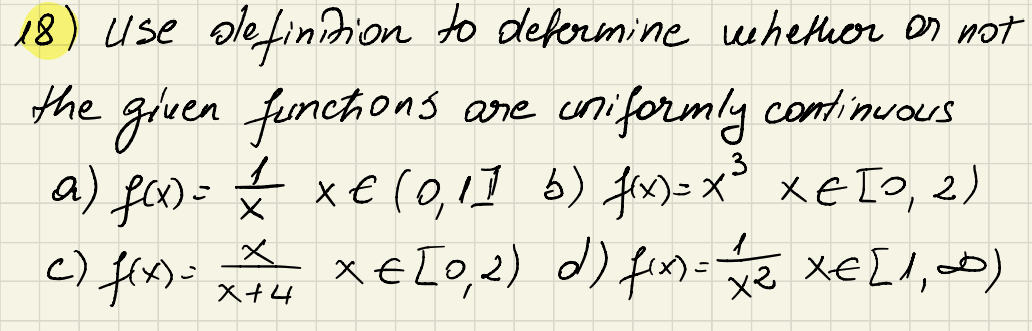 18) Use definition to determine whether or not
the given functions are uniformly continuous
a) f(x) = 1/x x ∈ (0, 1] b) f(x) = x³ x ∈ [0, 2)
c) f(x) = x/(x+4) x ∈ [0, 2) d) f(x) = 1/x² x ∈ [1, ∞)